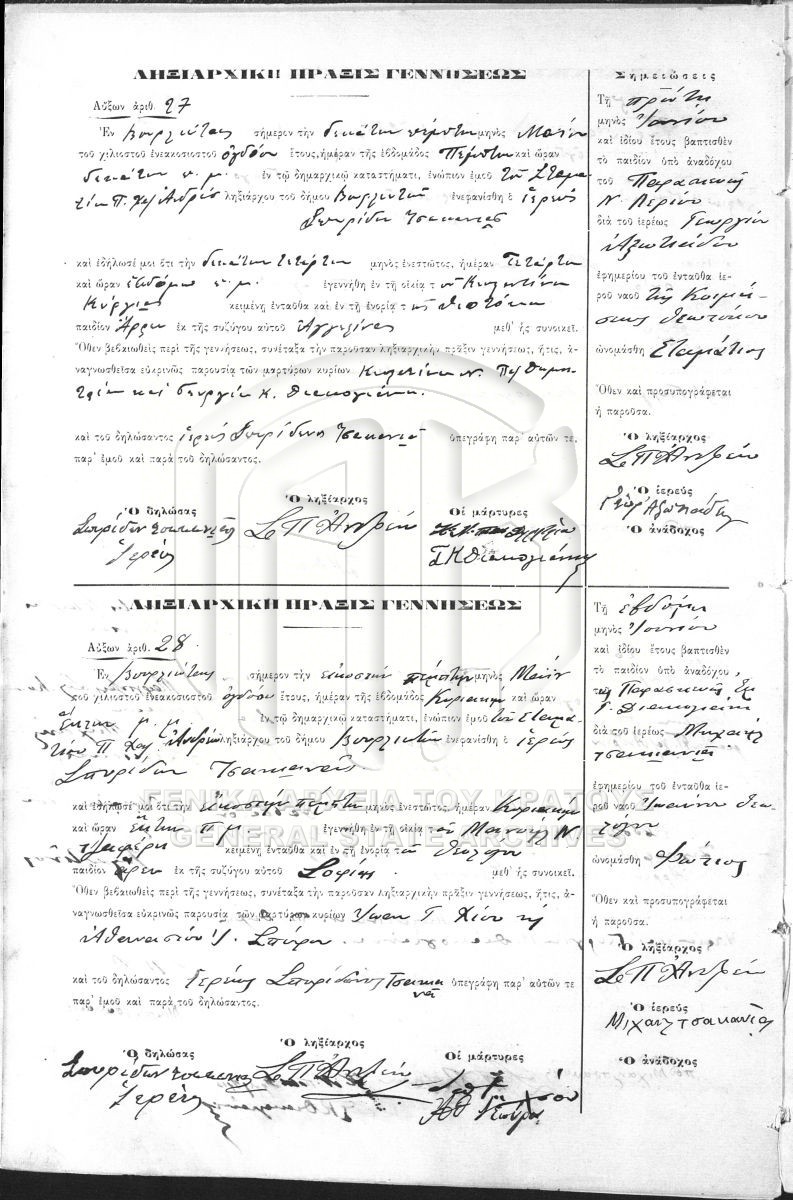 ΛΗΞΙΑΡΧΙΚΗ ΠΡΑΞΙΣ ΓΕΝΝΗΣΕΩΣ
Αὔξων ἀριθ. 27
Ἐν Βουρλιώταις σήμερον τὴν δεκάτην πέμπτην μηνὸς Μαΐου
τοῦ χιλιοστοῦ ἐνεακοσιοστοῦ ὀγδόου ἔτους, ἡμέραν τῆς ἑβδομάδος Πέμπτην καὶ ὥραν
δεκάτην π. μ. ἐν τῷ δημαρχικῷ καταστήματι, ἐνώπιον ἐμοῦ τοῦ Σταμα-
τίου Π. Χ΄΄ Ἀνδρέου ληξιάρχου τοῦ δήμου Βουρλιωτῶν ἐνεφανίσθη ὁ ἱερεὺς
Σπυρίδων Τσακανιᾶς
καὶ ἐδήλωσέ μοι ὅτι τὴν δεκάτην τετάρτην μηνὸς ἐνεστῶτος, ἡμέραν Τετάρτην
καὶ ὥραν ἑβδόμην π. μ. ἐγεννήθη ἐν τῇ οἰκίᾳ τοῦ Κωνσταντίνου
κειμένη ἐνταῦθα καὶ ἐν τῇ ἐνορίᾳ τῆς Θεοτόκου
παιδίον ἄρρεν ἐκ τῆς συζύγου αὐτοῦ Ἀγγελίνας μεθ᾽ ἧς συνοικεῖ.
Ὅθεν βεβαιωθεὶς περὶ τῆς γεννήσεως, συνέταξα τὴν παροῦσαν ληξιαρχικὴν πρᾶξιν γεννήσεως, ἥτις, ἀ-
ναγνωσθεῖσα εὐκρινῶς παρουσίᾳ τῶν μαρτύρων κυρίων Κωνσταντίνου Ν.
καὶ Γεωργίου Κ. Διακογιάννη.
καὶ τοῦ δηλώσαντος ἱερέως Σπυρίδωνος Τσακανιᾶ ὑπεγράφη παρ᾽ αὐτῶν τε
παρ᾽ ἐμοῦ καὶ παρὰ τοῦ δηλώσαντος.
Ὁ δηλώσας
Σπυρίδων Τσακανιᾶς
Ἱερεὺς
Ὁ ληξίαρχος
Σ Π Χ΄΄Ἀνδρέου
Οἱ μάρτυρες
Γ Κ Διακογιάννης
Σημειώσεις
Τῇ πρώτῃ
μηνὸς Ἰουνίου
καὶ ἰδίου ἔτους βαπτισθὲν
τὸ παιδίον ὑπὸ ἀναδόχου
τοῦ Παρασκευᾶ
Ν.
διὰ τοῦ ἱερέως Γεωργίου
ἐφημερίου τοῦ ἐνταῦθα ἱε-
ροῦ ναοῦ τῆς Κοιμή-
σεως Θεοτόκου
ὠνομάσθη Σταμάτιος
Ὅθεν καὶ προσυπογράφεται
ἡ παροῦσα.
Ὁ ληξίαρχος
Σ Π Χ΄΄Ἀνδρέου
Ὁ ἱερεὺς
Ὁ ἀνάδοχος
ΛΗΞΙΑΡΧΙΚΗ ΠΡΑΞΙΣ ΓΕΝΝΗΣΕΩΣ
Αὔξων ἀριθ. 28.
Ἐν Βουρλιώταις σήμερον τὴν εἰκοστὴν πέμπτην μηνὸς Μαΐου
τοῦ χιλιοστοῦ ἐνεακοσιοστοῦ ὀγδόου ἔτους, ἡμέραν τῆς ἑβδομάδος Κυριακὴν καὶ ὥραν
ἕκτην μ. μ. ἐν τῷ δημαρχικῷ καταστήματι, ἐνώπιον ἐμοῦ τοῦ Σταμα-
τίου Π. Χ΄΄ Ἀνδρέου ληξιάρχου τοῦ δήμου Βουρλιωτῶν ἐνεφανίσθη ὁ ἱερεὺς
Σπυρίδων Τσακανιᾶς
καὶ ἐδήλωσέ μοι ὅτι τὴν εἰκοστὴν πέμπτην μηνὸς ἐνεστῶτος, ἡμέραν Κυριακὴν
καὶ ὥραν ἕκτην π. μ. ἐγεννήθη ἐν τῇ οἰκίᾳ τοῦ Μανουὴλ Ν.
κειμένη ἐνταῦθα καὶ ἐν τῇ ἐνορίᾳ τοῦ Θεολόγου
παιδίον ἄρρεν ἐκ τῆς συζύγου αὐτοῦ Σοφίας μεθ᾽ ἧς συνοικεῖ.
Ὅθεν βεβαιωθεὶς περὶ τῆς γεννήσεως, συνέταξα τὴν παροῦσαν ληξιαρχικὴν πρᾶξιν γεννήσεως, ἥτις, ἀ-
ναγνωσθεῖσα εὐκρινῶς παρουσίᾳ τῶν μαρτύρων κυρίων Ἰωάν. Γ. Χίου καὶ
Ἀθανασίου Γ. Σπύρου
καὶ τοῦ δηλώσαντος Ἱερέως Σπυρίδωνος Τσακα-
νιᾶ ὑπεγράφη παρ᾽ αὐτῶν τε
παρ᾽ ἐμοῦ καὶ παρὰ τοῦ δηλώσαντος.
Ὁ δηλώσας
Σπυρίδων Τσακανιᾶς
Ἱερεὺς
Ὁ ληξίαρχος
Σ Π Χ΄΄Ἀνδρέου
Οἱ μάρτυρες
Τῇ ἑβδόμῃ
μηνὸς Ἰουνίου
καὶ ἰδίου ἔτους βαπτισθὲν
τὸ παιδίον ὑπὸ ἀναδόχου
τῆς Παρασκευῆς
Γ. Διακογιάννη
διὰ τοῦ ἱερέως Μιχαὴλ
Τσακανιᾶ
ἐφημερίου τοῦ ἐνταῦθα ἱε-
ροῦ ναοῦ Ἰωάννου Θεο-
λόγου
ὠνομάσθη Φώτιος
Ὅθεν καὶ προσυπογράφεται
ἡ παροῦσα.
Ὁ ληξίαρχος
Σ Π Χ΄΄Ἀνδρέου
Ὁ ἱερεὺς
Μιχαηλ τσακανιᾶς
Ὁ ἀνάδοχος
ΓΕΝΙΚΑ ΑΡΧΕΙΑ ΤΟΥ ΚΡΑΤΟΥΣ
GENERAL STATE ARCHIVES